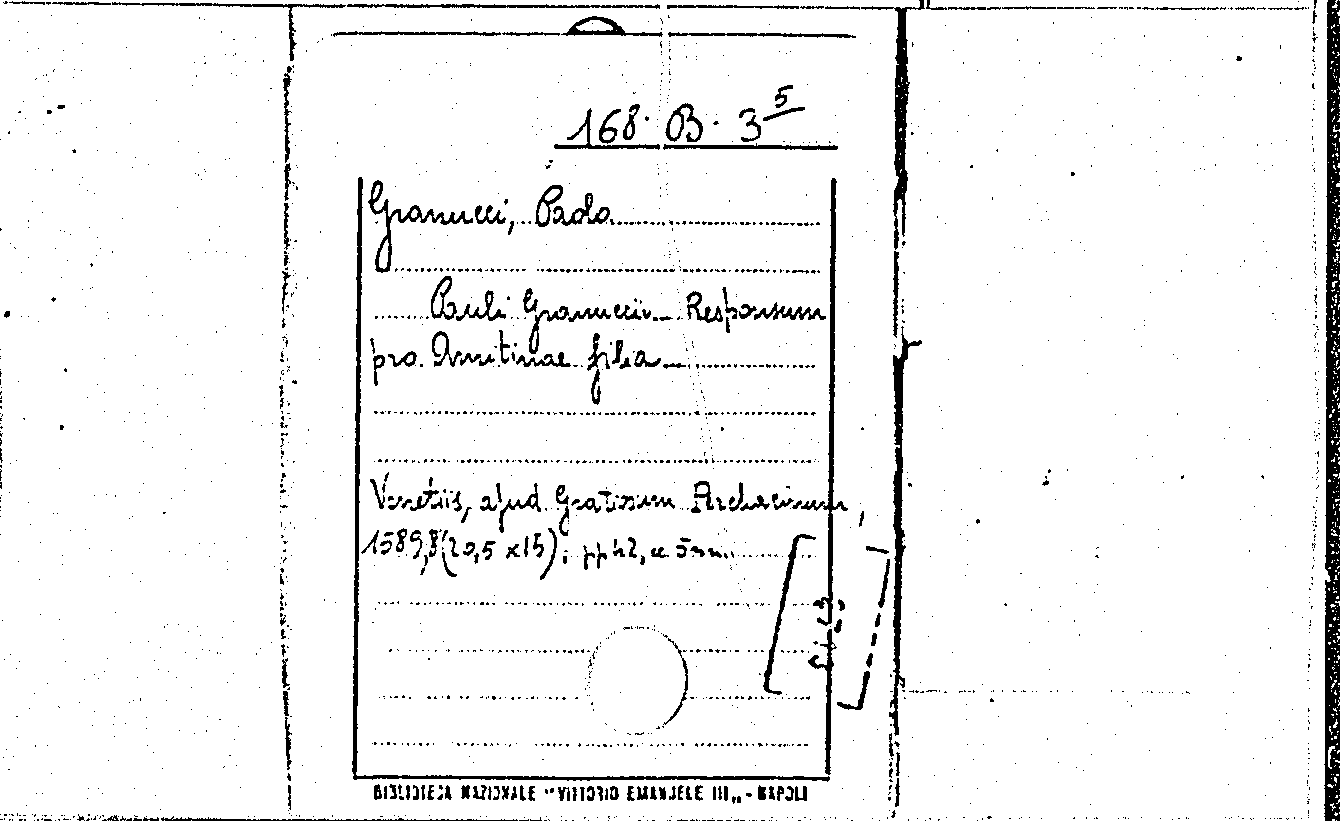 168. B. 3 5
Granucci, Paolo
Pauli Granucii... Responsum
pro Amitinae filia...
Venetiis, apud Gratiosum Perchacinum,
1589, 8 (20,5 x 15); pp 42, 
BIBLIOTECA NAZIONALE "VITTORIO EMANUELE III" - NAPOLI